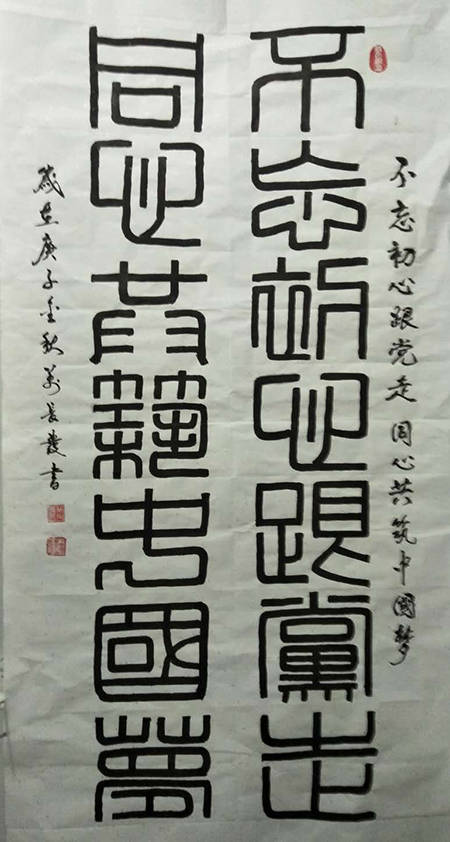 不忘初心跟党走 同心共筑中国梦
不忘初心跟黨走
同心共築中國夢
歲在庚子金秋萬長發書